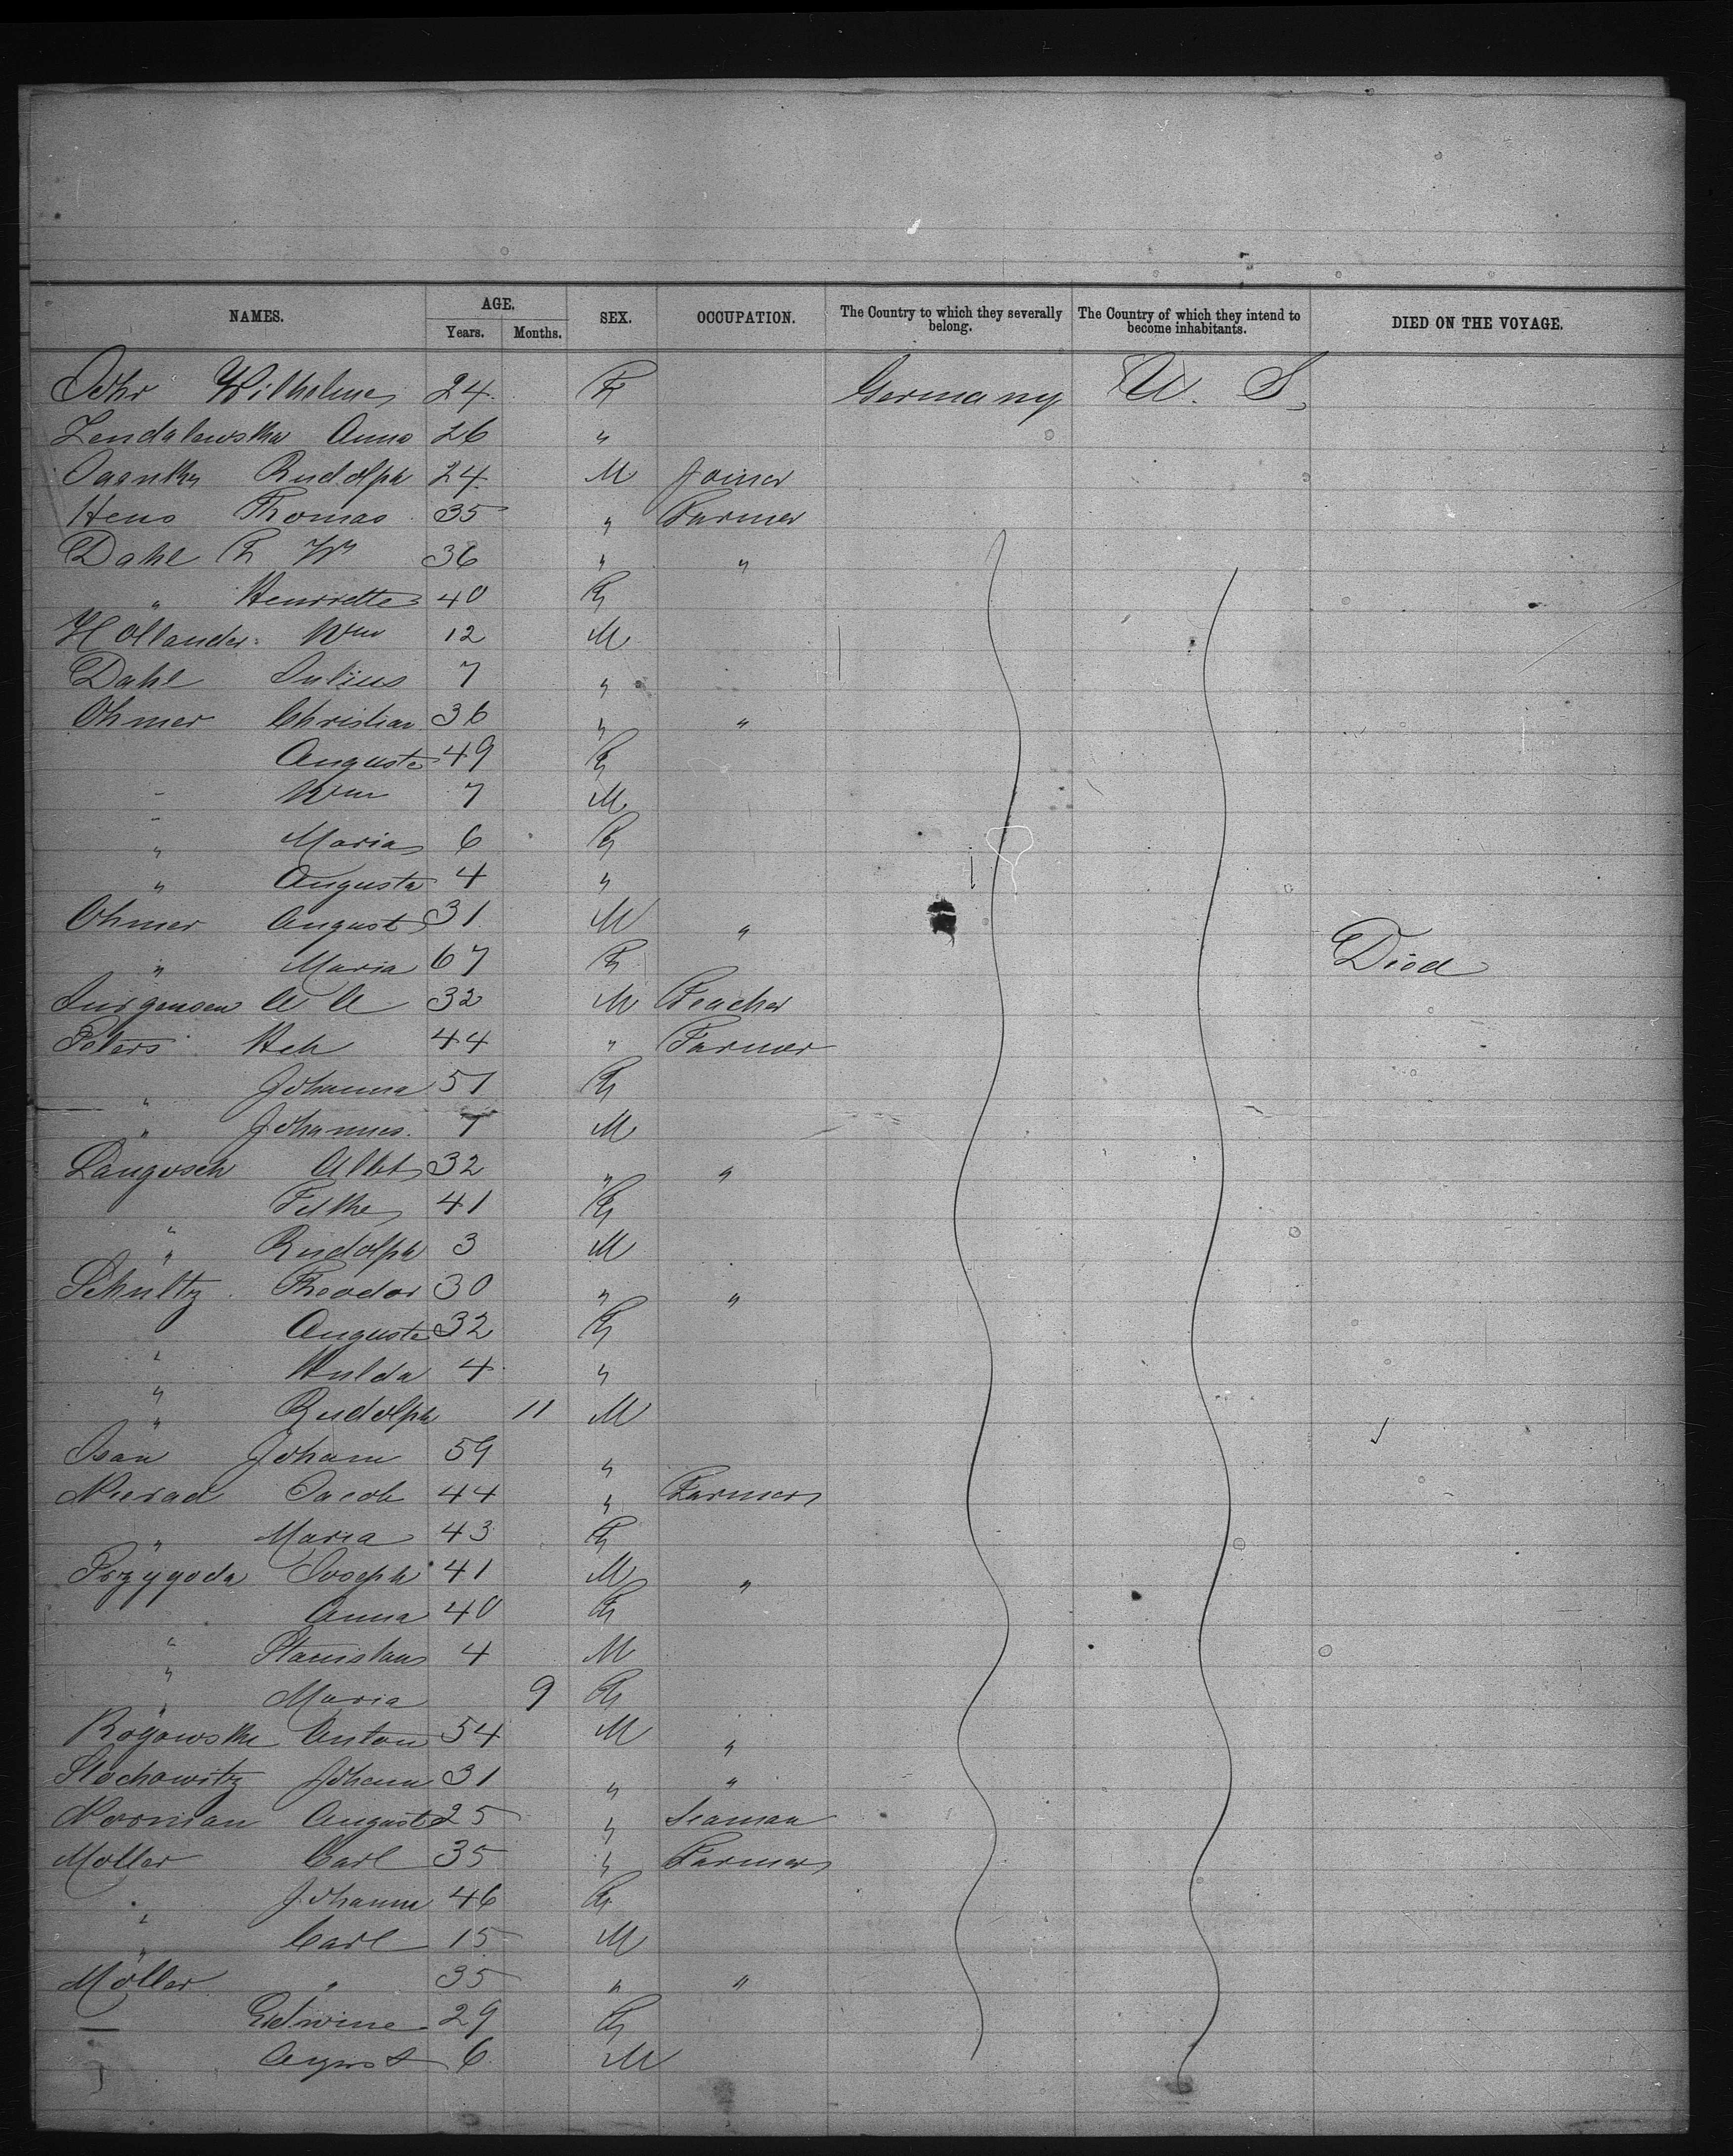 NAMES. AGE. SEX. OCCUPATION. The Country to which they severally belong. The Country of which they intend to become inhabitants. DIED ON THE VOYAGE.
Years. Months.
Wilhelme 24 F Germany U. S.
Anna 26 "
Rudolph 24 M Joiner
Hens Thomas 35 " Farmer
Dahl F Wm 36 " "
" Henriette 40 F
Hollander Wm 12 M
Dahl Julius 7 "
Ohmer Christian 36 " "
Auguste 49 F
" Wm 7 M
" Maria 6 F
" Augusta 4 "
Ohmer August 31 M "
" Maria 67 F Died
Jurgensen A A 32 M Teacher
Peters Hch 44 " Farmer
" Johanna 51 F
" Johannes 7 M
Langosch Albt 32 " "
" 41 F
" Rudolph 3 M
Schultz Theodor 30 " "
" Auguste 32 F
" Hulda 4 "
" Rudolph 11 M
Johann 59 "
Nierad Jacob 44 " Farmer
" Maria 43 F
Przygoda Joseph 41 M "
" Anna 40 F
" Stanislaus 4 M
" Maria 9 F
Rogowske Anton 54 M "
Stochowitz Johann 31 " "
Norman August 25 " Seaman
Moller Carl 35 " Farmer
" Johanne 46 F
" Carl 15 M
Möller " 35 " "
Edwine 29 F
August 6 M